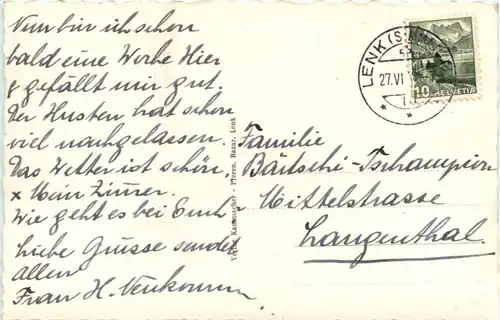 Nun bin ich schon
bald eine Woche Hier
& gefällt mir gut.
Der Husten hat schon
viel nachgelassen.
Das Wetter ist schön.
x Mein Zimer.
Wie geht es bei Euch.
Liebe Grüsse sendet
allen
Frau H. Neukomm
Verlag Kammacher - Pieren, Bazar, Lenk
LENK (SIMME
27.VI
10 HELVETIA
Familie
Bärtschi-Tschampion
Mittelstrasse
Langenthal.